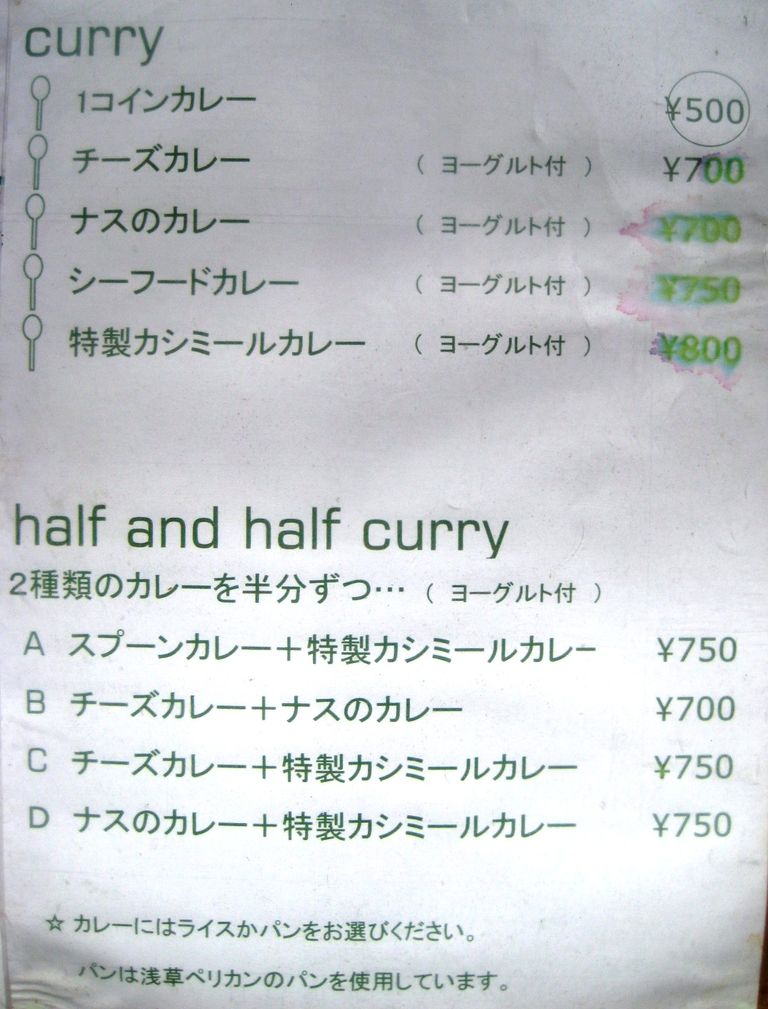 curry
1コインカレー ¥500
チーズカレー ( ヨーグルト付 ) ¥700
ナスのカレー ( ヨーグルト付 ) ¥700
シーフードカレー ( ヨーグルト付 ) ¥750
特製カシミールカレー ( ヨーグルト付 ) ¥800
half and half curry
2種類のカレーを半分ずつ… ( ヨーグルト付 )
A スプーンカレー＋特製カシミールカレー ¥750
B チーズカレー＋ナスのカレー ¥700
C チーズカレー＋特製カシミールカレー ¥750
D ナスのカレー＋特製カシミールカレー ¥750
☆ カレーにはライスかパンをお選びください。
パンは浅草ペリカンのパンを使用しています。